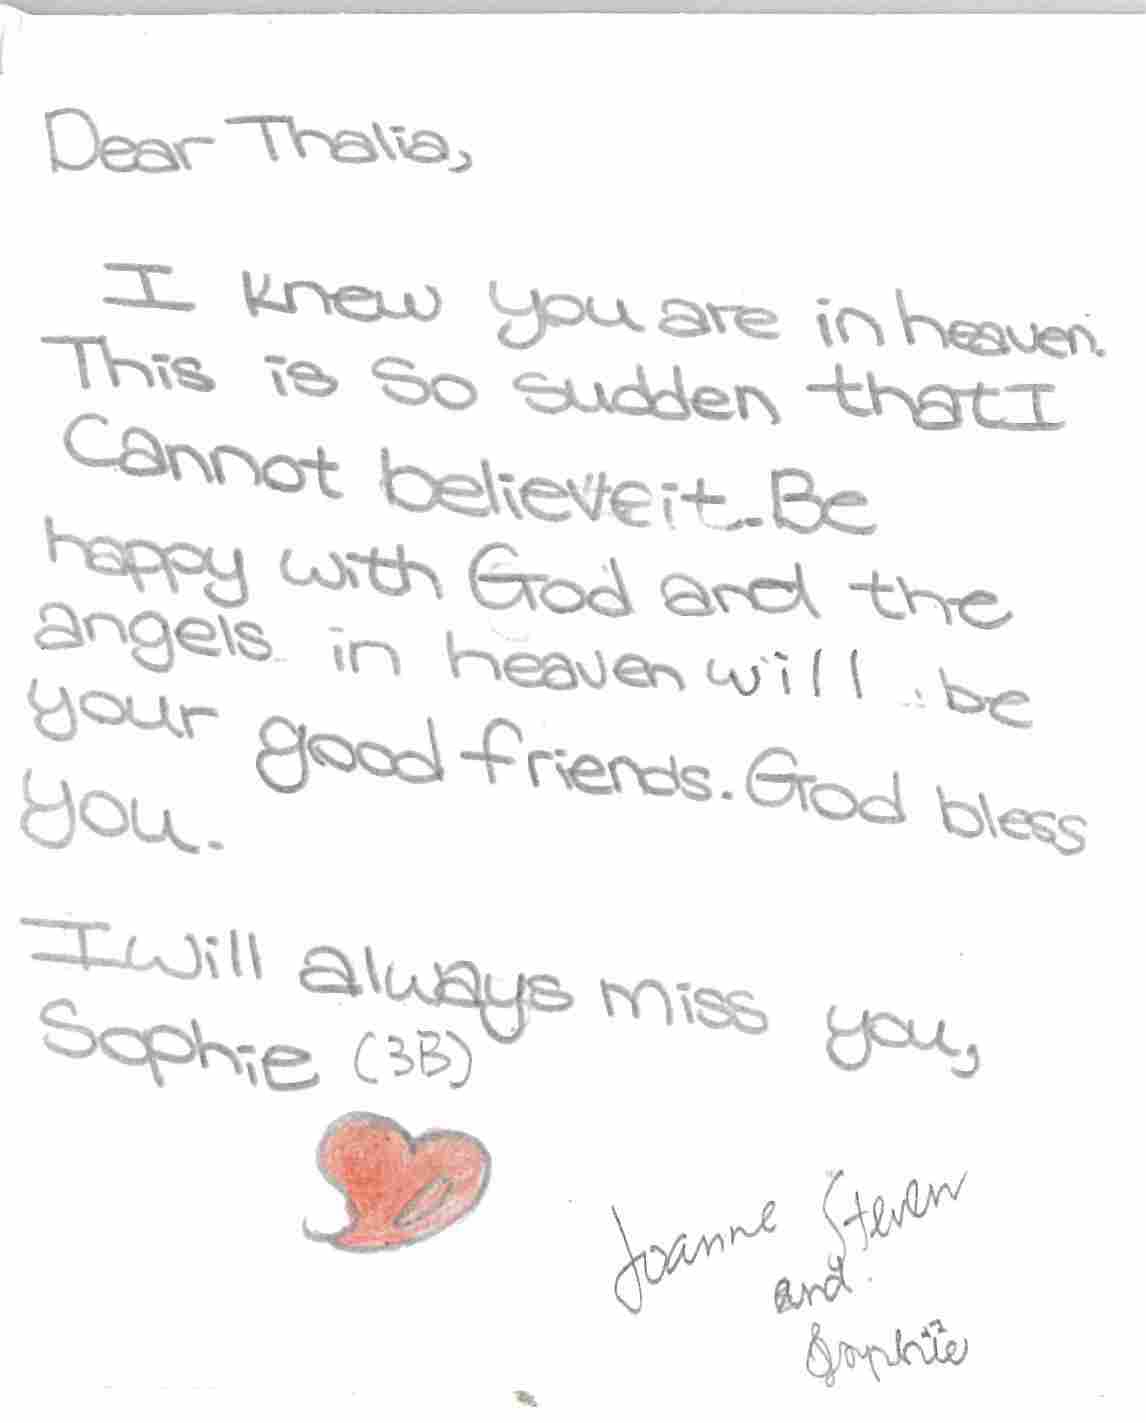 Dear Thalia,
I knew you are in heaven.
This is so sudden that I
Cannot believe it. Be
happy with God and the
angels in heaven will be
your good friends. God bless
you.
I will always miss you,
Sophie (3B)
Joanne Steven
and
Sophie